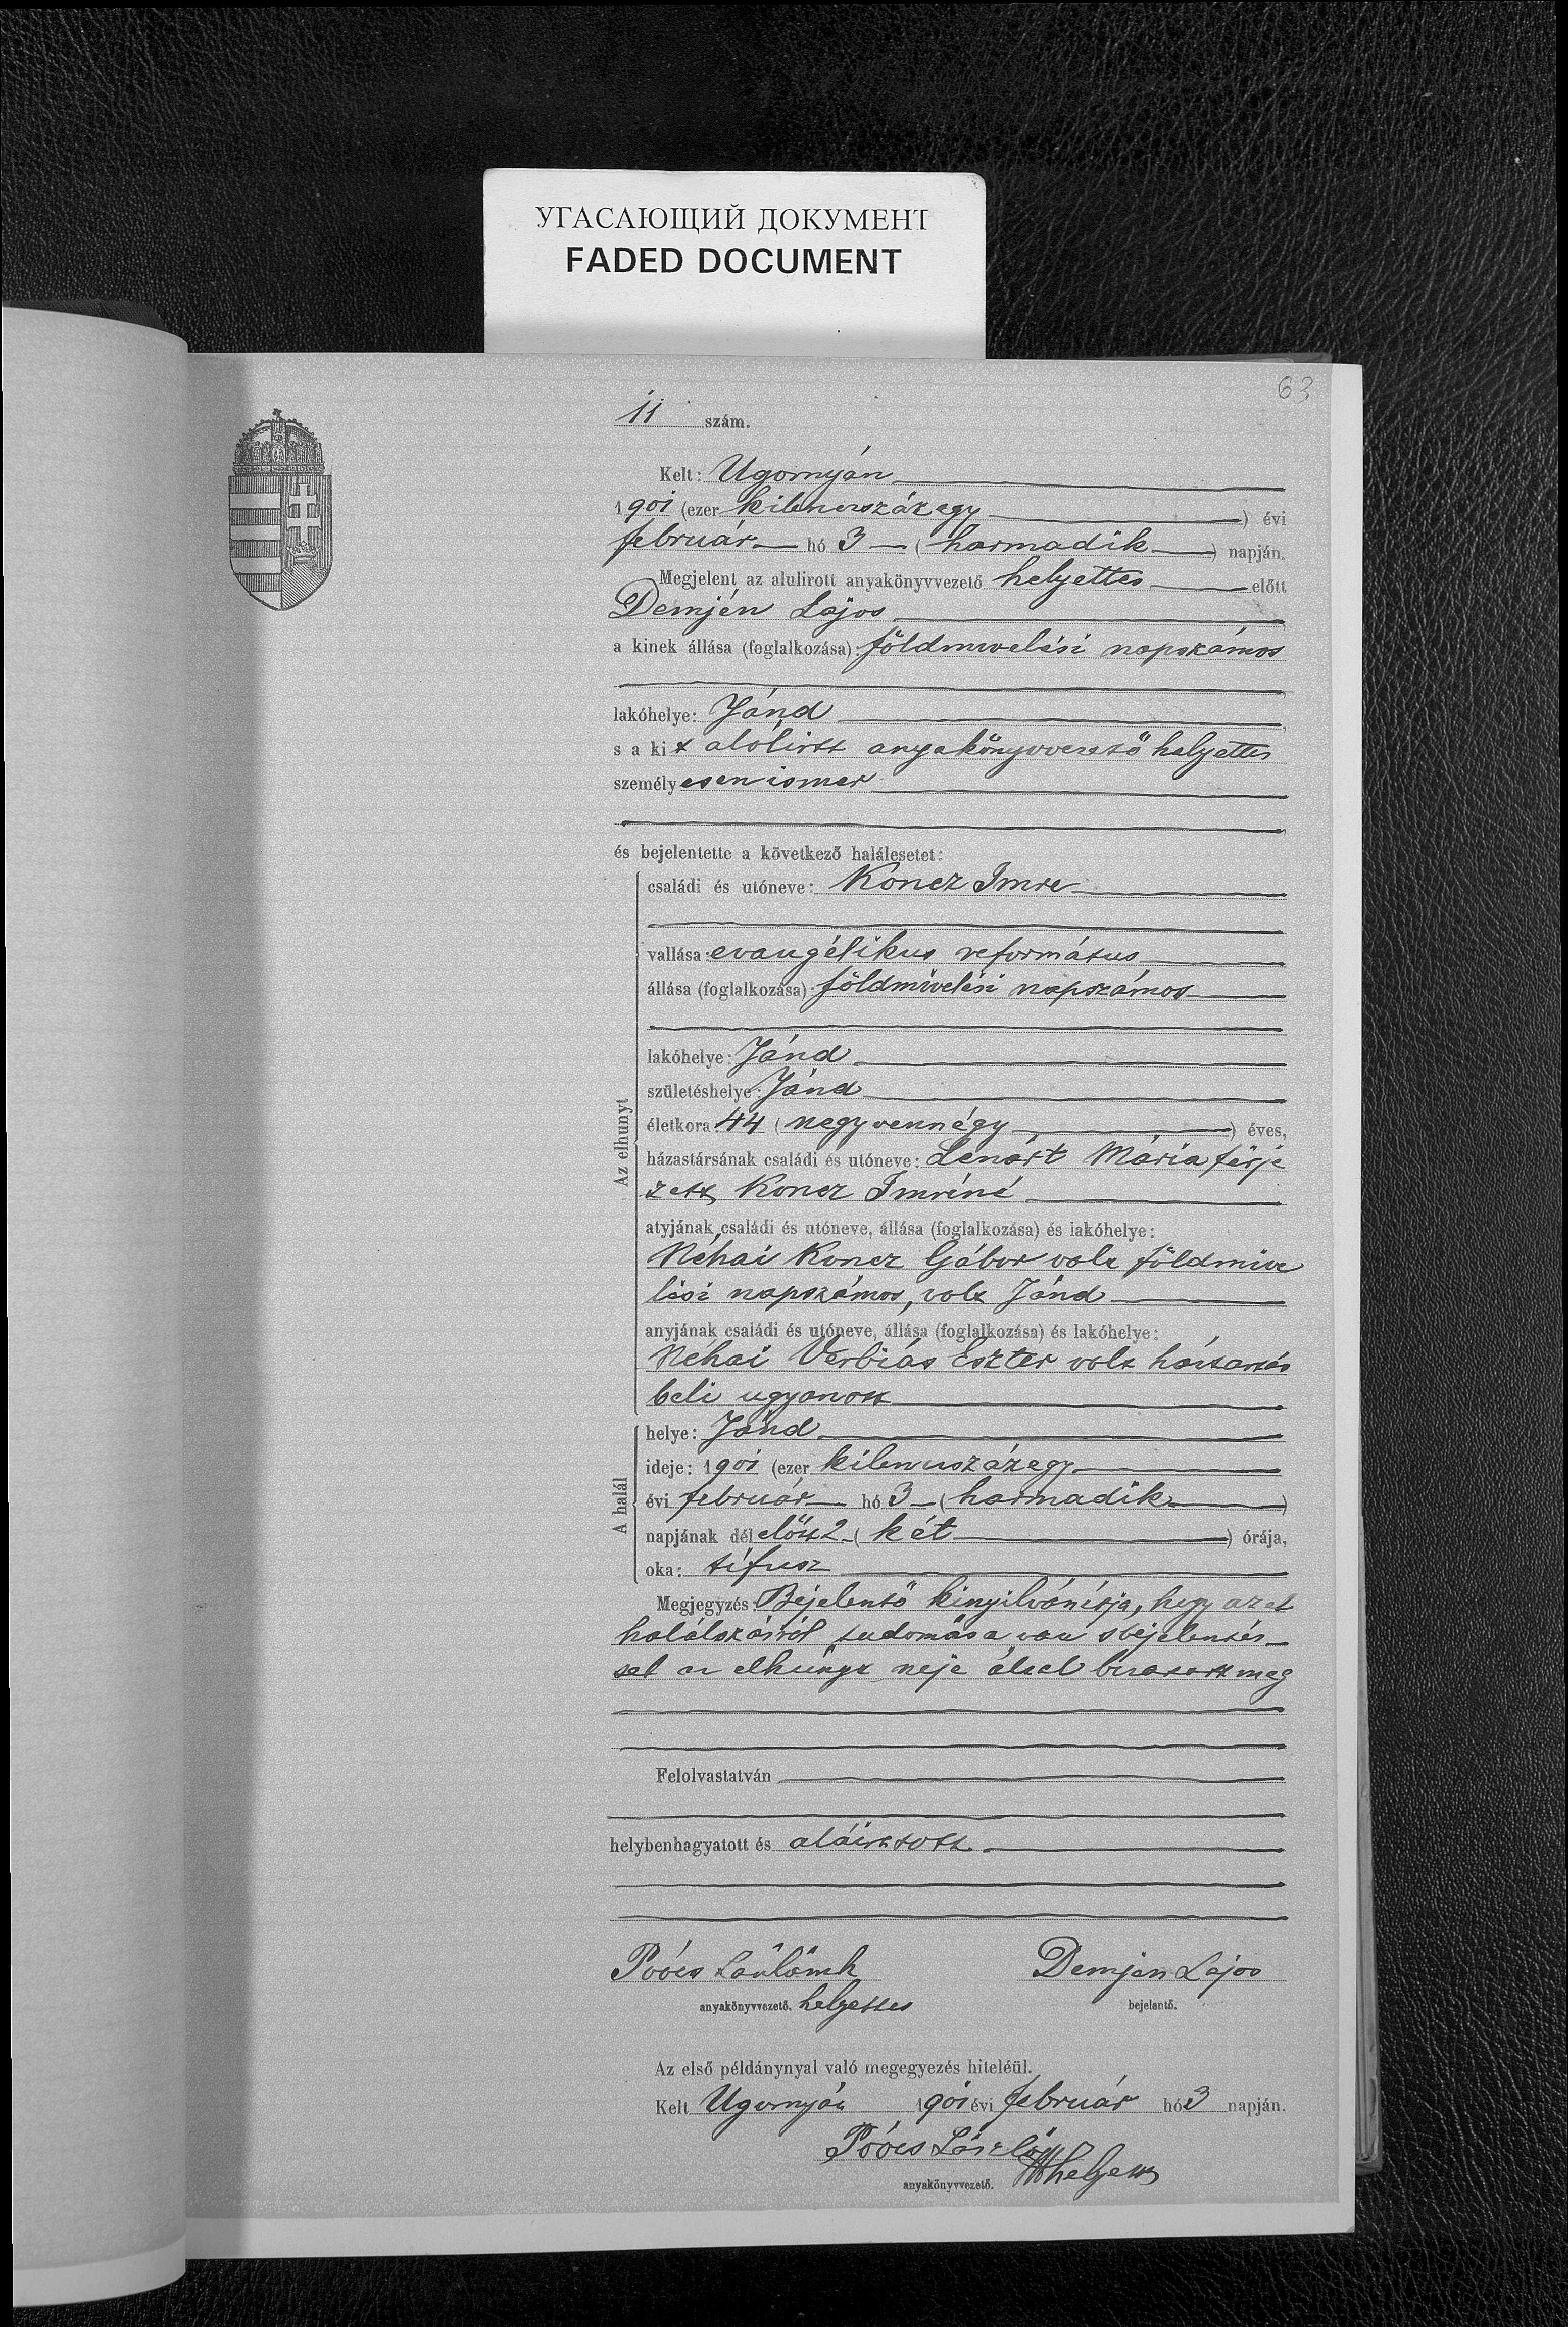 УГАСАЮЩИЙ ДОКУМЕНТ
FADED DOCUMENT
63
11 szám.
Kelt: Ugornyán
1901 (ezer kilenczszázegy) évi
február hó 3 (harmadik) napján.
Megjelent az alulirott anyakönyvvezető helyettes előtt
Demjén Lajos
a kinek állása (foglalkozása): földmivelési napszámos
lakóhelye: Jánd
s a kit alólirtt anyakönyvvezető helyettes
személyesen ismer
és bejelentette a következő halálesetet:
Az elhunyt
családi és utóneve: Koncz Imre
vallása: evangélikus református
állása (foglalkozása): földmivelési napszámos
lakóhelye: Jánd
születéshelye: Jánd
életkora 44 (negyvennégy) éves,
házastársának családi és utóneve: Lenárt Mária férje
zett Koncz Imréné
atyjának családi és utóneve, állása (foglalkozása) és lakóhelye:
Néhai Koncz Gábor volt földmive
lési napszámos, volt Jánd
anyjának családi és utóneve, állása (foglalkozása) és lakóhelye:
Néhai Verbiás Eszter volt háztartás
beli ugyanott
A halál
helye: Jánd
ideje: 1901 (ezer kilenczszázegy
évi február hó 3 (harmadik)
napjának dél előtt 2 (két) órája,
oka: tífusz
Megjegyzés: Bejelentő kinyilvánítja, hogy az el
halálozásról tudomása van s bejelentés-
sel az elhúnyt neje által bizatott meg
Felolvastatván
helybenhagyatott és aláiratott
Póócs Demjén Lajos
anyakönyvvezető. helyettes bejelentő.
Az első példánynyal való megegyezés hiteléül.
Kelt Ugornyán 1901 évi február hó 3 napján.
Póócs László
anyakönyvvezető. helyettes